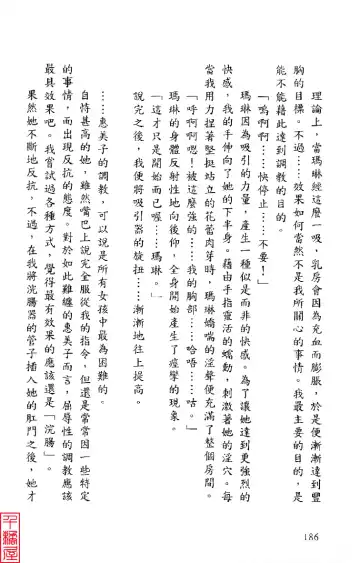 理論上，當瑪琳經這麼一吸，乳房會因為充血而膨脹，於是便漸漸達到豐
胸的目標。不過……效果如何當然不是我所關心的事情。我最主要的目的，是
能不能藉此達到調教的目的。
「嗚啊啊……快停止……不要！」
瑪琳因為吸引的力量，產生一種似是而非的快感。為了讓她達到更強烈的
快感，我的手伸向了她的下半身。藉由手指靈活的蠕動，刺激著她的淫穴。每
當我用力捏著堅挺站立的花蕾肉芽時，瑪琳嬌喘的淫聲便充滿了整個房間。
「呼啊啊嗯！被這麼強的……我的胸部……哈唔……咕。」
瑪琳的身體反射性地向後仰，全身開始產生了痙攣的現象。
「這才只是開始而已喔……瑪琳。」
說完之後，我便將吸引器的旋扭……漸漸地往上提高。
……惠美子的調教，可以說是所有女孩中最為困難的。
自恃甚高的她，雖然嘴巴上說完全服從我的指令，但還是常常因一些特定
的事情，而出現反抗的態度。對於如此難纏的惠美子而言，屈辱性的調教應該
最具效果吧。我嘗試過各種方式，覺得最有效果的應該還是「浣腸」。
果然她不斷地反抗，不過，在我將浣腸器的管子插入她的肛門之後，她才
186